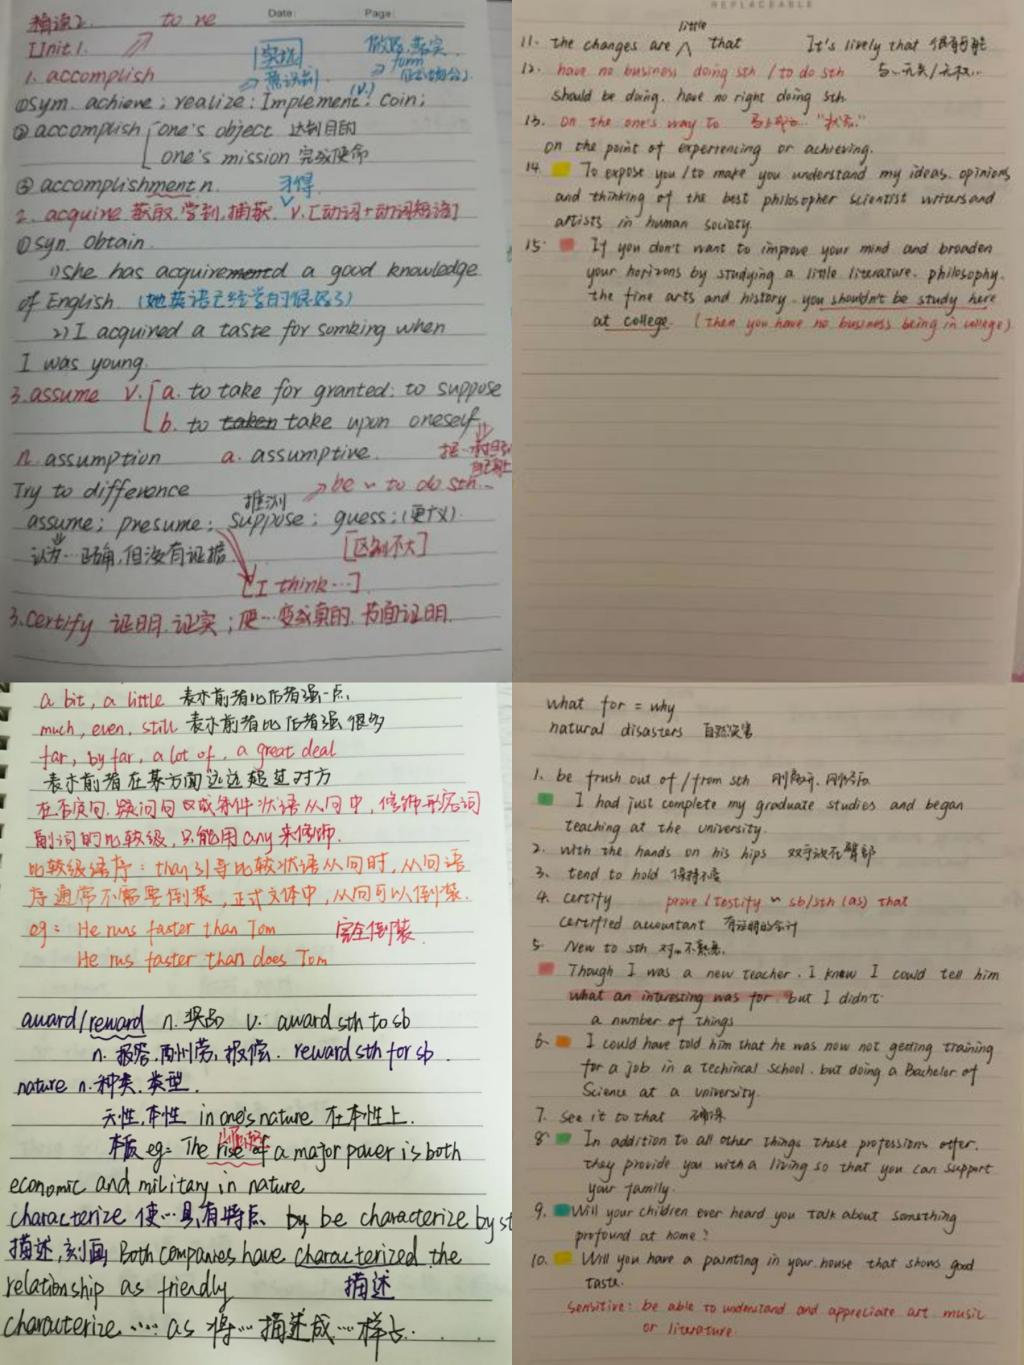 精读2.
Date: Page:
Unit 1.
1. accomplish
①sym. achieve; realize; Implement; Coin;
②accomplish one's object 达到目的
one's mission 完成使命
③accomplishment n. 习得
2. acquire 获取.学到.捕获. v. [动词+动词短语]
①syn. obtain.
1)she has acquiremented a good knowledge
of English. (她英语已经学的很好了)
2) I acquired a taste for somking when
I was young.
3.assume v. a. to take for granted: to suppose
b. to taken take upon oneself
n. assumption a. assumptive.
Try to difference be ~ to do sth.
推测
assume; presume; suppose; guess;
认为…正确,但没有证据. [区别不大]
[I think…]
3.Certify 证明.证实;使…变成真的.书面证明.
REPLACEABLE
little
11. the changes are ∧ that It's lively that 很有可能
12. have no business doing sth / to do sth 与…无关/无权…
should be doing. have no right doing sth.
13. on the one's way to "状态."
on the point of experiencing or achieving.
14. To expose you / to make you understand my ideas. opinions
and thinking of the best philosopher scientist writers and
artists in human society.
15. If you don't want to improve your mind and broaden
your horizons by studying a little literature. philosophy.
the fine arts and history. you shouldn't be study here
at college. (then you have no business being in college)
a bit, a little 表示前者比后者强一点.
much, even, still 表示前者比后者强很多
far, by far, a lot of, a great deal
表示前者在某方面远远超过对方
在否定句.疑问句又或条件状语从句中,修饰形容词
副词的比较级,只能用any来修饰.
比较级语序:than引导比较状语从句时,从句语
序通常不需要倒装,正式文体中,从句可以倒装.
eg: He runs faster than Tom 完全倒装.
He rus faster than does Tom
award/reward n. 奖品 v. award sth to sb
n. 报答.酬劳,报偿. reward sth for sb.
nature n. 种类.类型.
天性,本性 in one's nature 在本性上.
eg: The rise of a major power is both
economic and military in nature
characterize 使…具有特点、 by be characterize by st
描述,刻画 Both companies have characterized the
relationship as friendly 描述
characterize ..... as 将…描述成…样子.
what for = why
natural disasters 自然灾害
1. be frush out of / from sth
I had just complete my graduate studies and began
teaching at the university.
2. with the hands on his hips 双手放在臀部
3. tend to hold 保持不变
4. certify prove / testify ~ sb/sth (as) that
certified accountant 有证明的会计
5. New to sth 对…不熟悉.
Though I was a new teacher. I knew I could tell him
what an interesting was for. but I didn't.
a number of things
6. I could have told him that he was now not getting training
for a job in a techincal school. but doing a Bachelor of
Science at a university.
7. see it to that 确保
8. In addition to all other things these professions offer.
they provide you with a living so that you can support
your family.
9. Will your children ever heard you talk about something
profound at home?
10. Will you have a painting in your house that shows good
taste.
Sensitive: be able to understand and appreciate art. music
or literature.